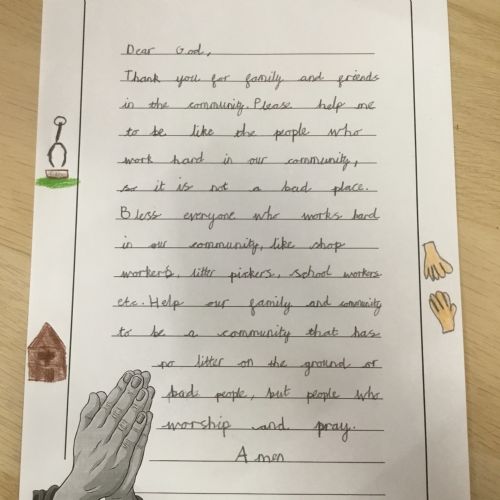 Dear God,
Thank you for family and friends
in the community. Please help me
to be like the people who
work hard in our community,
so it is not a bad place.
Bless everyone who works hard
in our community, like shop
workers, litter pickers, school workers
etc. Help our family and community
to be a community that has
no litter on the ground or
bad people, but people who
worship and pray.
Amen